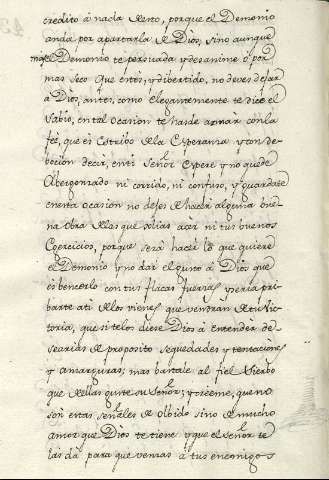 credito à nada desto, porque el Demonio
anda por apartarla de Dios, sino aunque
mas el Demonio te persuada y desanime ò por
mas seco que estes, y divertido, no deves dejar
à Dios, antes, como elegantemente te dice el
Sabio, en tal ocasion te has de armar con la
feè, que es estribo de la Esperanza y con de-
bocion decir, en ti Señor Espere y no quede
Abergonzado ni corrido, ni confuso, y guardate
en esta ocasion no dejes de hacer alguna bue-
na obra de las que solias acer ni tus buenos
Egercicios, porque serà hacer lo que quiere
el Demonio y no dar el gusto à Dios que
es bencerlo con tus flacas fuerzas y seria pri-
barte à ti de los vienes que vendran de tu Vic-
toria, que si te los diese Dios à entender de-
searias de proposito sequedades y tentaciones
y amarguras, mas bastale al fiel Sierbo
que de ellas guste su Señor; y creeme, que no
son estas señales de olbido sino de mucho
amor que Dios te tiene y que el Señor te
las dà para que venzas à tus enemigos